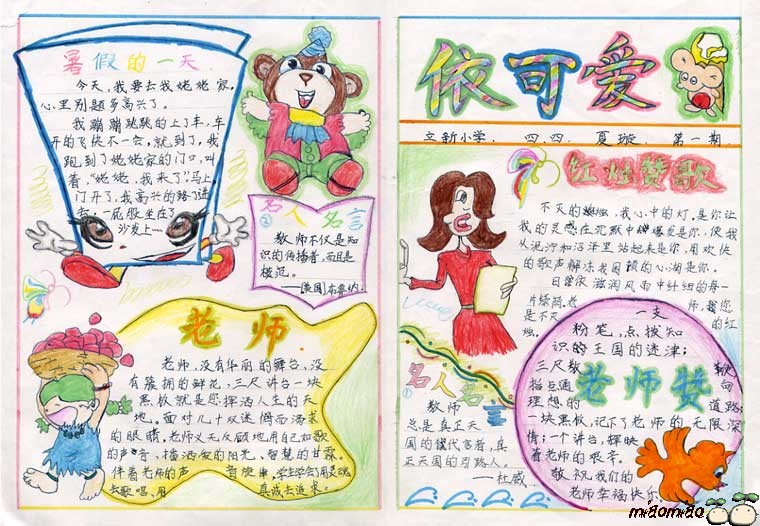 暑假的一天
今天,我要去我姥姥家,
心里别题多高兴了。
我蹦蹦跳跳的上了车,车
开的飞快不一会,就到了,我
跑到了姥姥家的门口,叫
着,“姥姥,我来了”马上
门开了,我高兴的跨了进
去,一屁股坐在了
沙发上……
名人名言
②
教师不仅是知
识的传播者,而且是
模范。
——[美国]布鲁纳
老师
老师,没有华丽的舞台,没
有簇拥的鲜花,三尺讲台一块
黑板就是您挥洒人生的天
地。面对几十双迷惘而渴求
的眼睛,老师义无反顾地用自己如歌
的声音,播洒爱的阳光、智慧的甘霖。
伴着老师的声音旋律,学生学会了用灵魂
去歌唱,用真诚去追求。
依可爱
立新小学、四.四.夏璇.第一期
红烛赞歌
不灭的蜡烛,我心中的灯。是你让
我的灵感在沉默中爆发是你,使我
从泥泞和沼泽里站起来是你,用欢快
的歌声解冻我困顿的心湖是你。
滋润风雨中纤细的每一
片绿荫。老师,我您
是不灭的红
烛。
名人名言
①
教师
总是真正天
国的代言者,真
正天国的引路人。
——杜威
老师赞
一支
粉笔,点拨知
识的王国的迷津;
三尺教鞭
指点通向
理想的道路;
一块黑板,记下了老师的无限深
情;一个讲台,辉映
着老师的艰辛。
敬祝我们的
老师幸福快乐
miaomiao